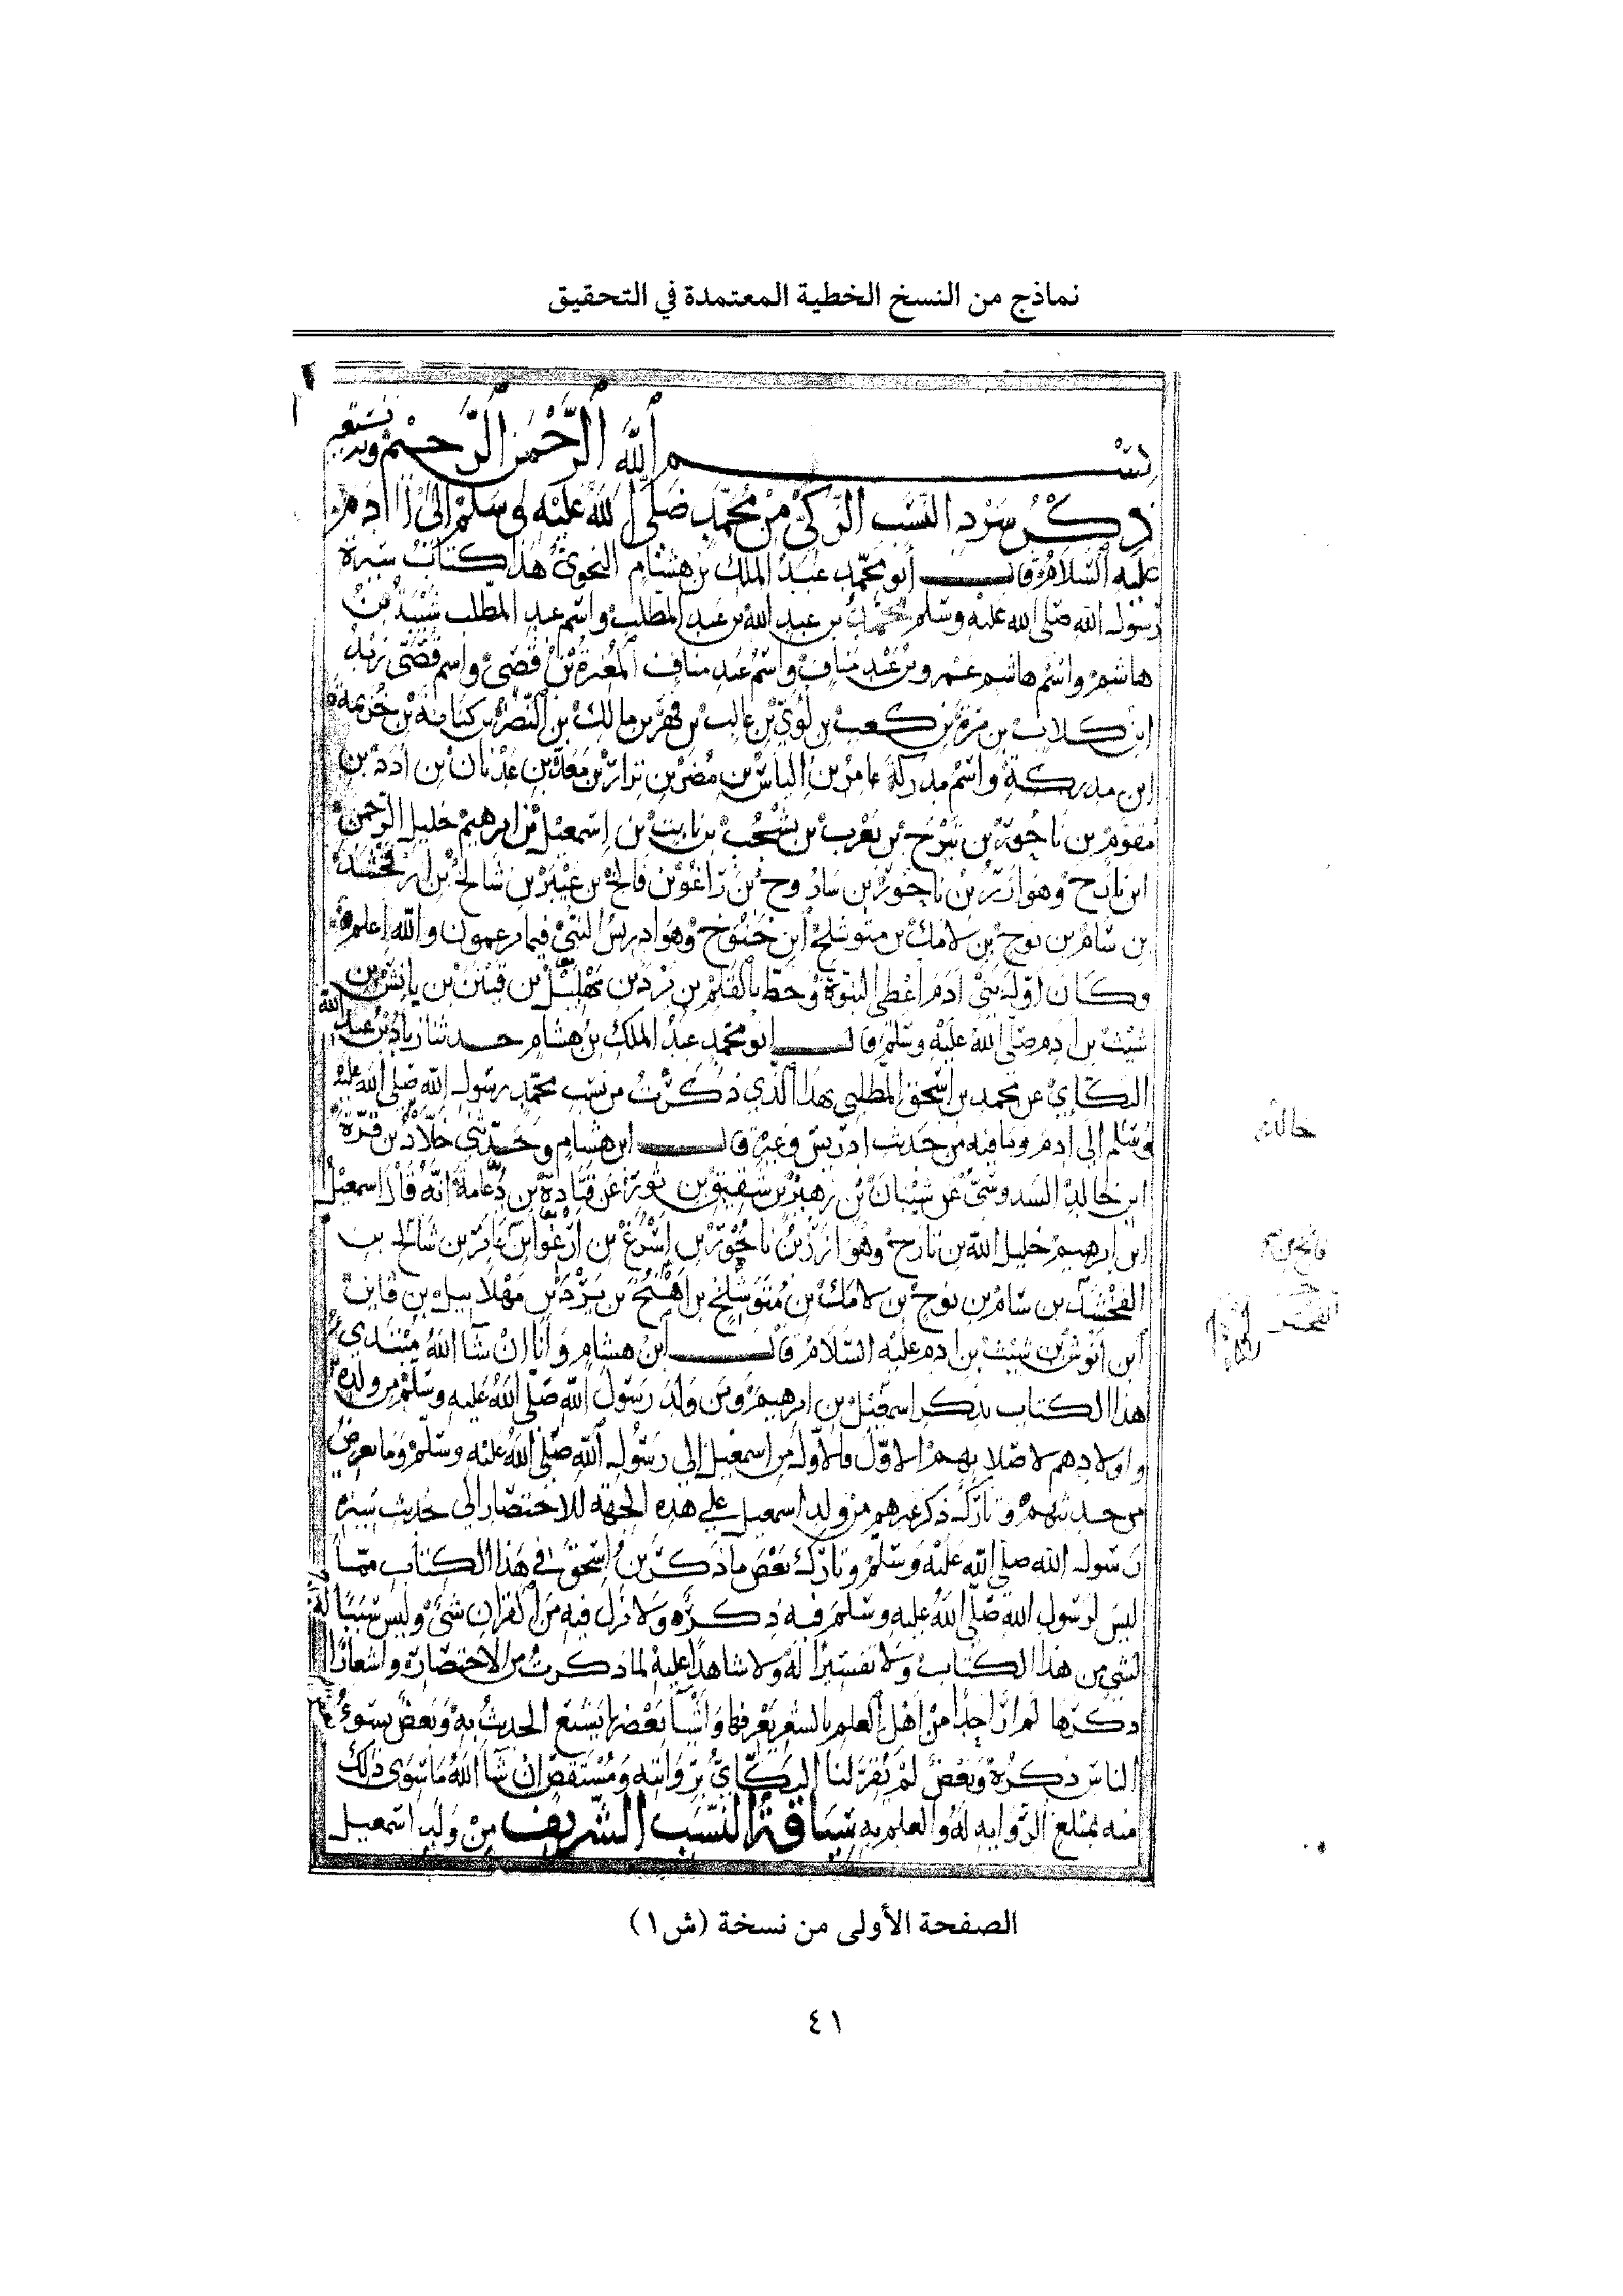 نماذج من النسخ الخطية المعتمدة في التحقيق
بسم الله الرحمن الرحيم وبه نستعين
ذكر سرد النسب الزكي من محمد صلى الله عليه وسلم الى آدم
عليه السلام قال أبو محمد عبد الملك بن هشام النحوي هذا كتاب سيرة
رسول الله صلى الله عليه وسلم محمد بن عبد الله بن عبد المطلب واسم عبد المطلب شيبة بن
هاشم واسم هاشم عمرو بن عبد مناف واسم عبد مناف المغيرة بن قصي واسم قصي زيد
ابن كلاب بن مرة بن كعب بن لؤي بن غالب بن فهر بن مالك بن النضر بن كنانة بن خزيمة
ابن مدركة واسم مدركة عامر بن الياس بن مضر بن نزار بن معد بن عدنان بن ادد بن
مقوم بن ناحور بن تيرح بن يعرب بن يشجب بن نابت بن اسمعيل بن ابرهيم خليل الرحمن
ابن تارح وهو ازر بن ناحور بن ساروح بن راغو بن فالخ بن عيبر بن شالخ بن ارفخشذ
بن سام بن نوح بن لامك بن متوشلخ ابن خنوخ وهو ادريس النبي فيما يزعمون والله اعلم
وكان اول بني ادم اعطى النبوة وخط بالقلم بن يرد بن مهليل بن قينن بن يانش بن
شيث بن ادم صلى الله عليه وسلم قال ابو محمد عبد الملك بن هشام حدثنا زياد بن عبد الله
البكاي عن محمد بن اسحق المطلبي بهذا الذي ذكرت من نسب محمد رسول الله صلى الله عليه
وسلم الى ادم وما فيه من حديث ادريس وغيره قال ابن هشام وحدثني خلاد بن قرة
ابن خالد السدوسي عن شيبان بن زهير بن شقيق بن ثور عن قتادة بن دعامة انه قال اسمعيل
ابن ابرهيم خليل الله بن تارح وهو ازر بن ناحور بن اسرغ بن ارغوا بن عابر بن شالخ بن
الفخشذ بن سام بن نوح بن لامك بن متوشلخ بن اهنخ بن يرد بن مهلاييل بن قاين
ابن انوش بن شيث بن ادم عليه السلام قال ابن هشام وانا ان شا الله مبتدي
هذا الكتاب بذكر اسمعيل بن ابرهيم ومن ولد رسول الله صلى الله عليه وسلم من ولده
واولادهم لاصلابهم الاول فالاول من اسمعيل الى رسول الله صلى الله عليه وسلم وما يعرض
من حديثهم وتارك ذكر غيرهم من ولد اسمعيل على هذه الجهة للاختصار الى حديث سيرة
رسول الله صلى الله عليه وسلم وتارك بعض ما ذكر بن اسحق في هذا الكتاب مما
ليس لرسول الله صلى الله عليه وسلم فيه ذكره ولا نزل فيه من القران شيء وليس سببا له
لشي من هذا الكتاب ولا تفسيرا له ولا شاهدا عليه لما ذكرت من الاختصار واشعارا
ذكرها لم ار احدا من اهل العلم بالشعر يعرفها واشيا بعضها يشنع الحديث به وبعض يسوء
الناس ذكره وبعض لم يقر لنا البكاي بروايته ومستقص ان شا الله ما سوى ذلك
منه بمبلغ الرواية له والعلم به سياقة النسب الشريف من ولد اسمعيل
الصفحة الأولى من نسخة (ش١)
٤١